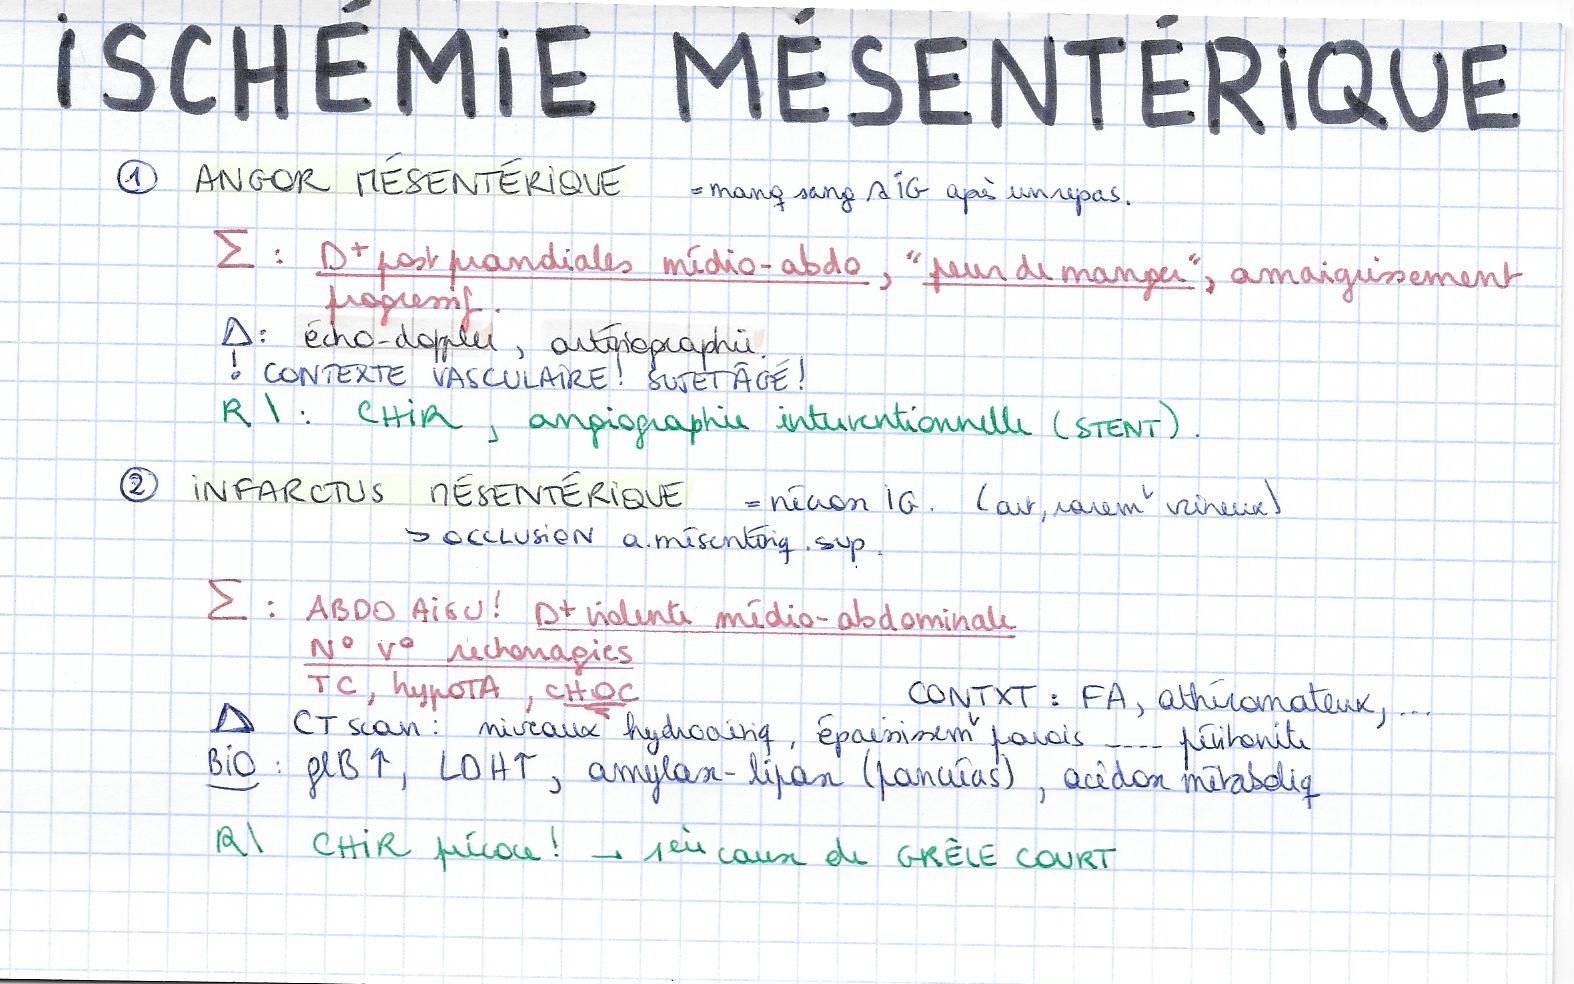 iSCHÉMiE MÉSENTÉRiQUE
① ANGOR MÉSENTÉRiQUE = manq sang à iG après un repas.
Σ : D+ post prandiales médio-abdo, "peur de manger", amaigrissement
progressif.
Δ : écho-doppler, artériographie.
! CONTEXTE VASCULAiRE! SUJET ÂGÉ!
R\ : CHiR, angiographie interventionnelle (STENT).
② iNFARCTUS MÉSENTÉRiQUE = nécrose iG. (art, raremt veineux)
→ OCCLUSiON a. mésentériq. sup.
Σ : ABDO AiGU! D+ violente médio-abdominale
N° V° rechorragies
TC, hypoTA, CHOC
CONTXT : FA, athéromateux, ...
Δ CT scan : niveaux hydroaériq, épaississemt parois .... péritonite
BiO : glB ↑, LDH ↑, amylase-lipase (pancréas), acidose métaboliq
R\ CHiR précoce! → 1ère cause de GRÊLE COURT